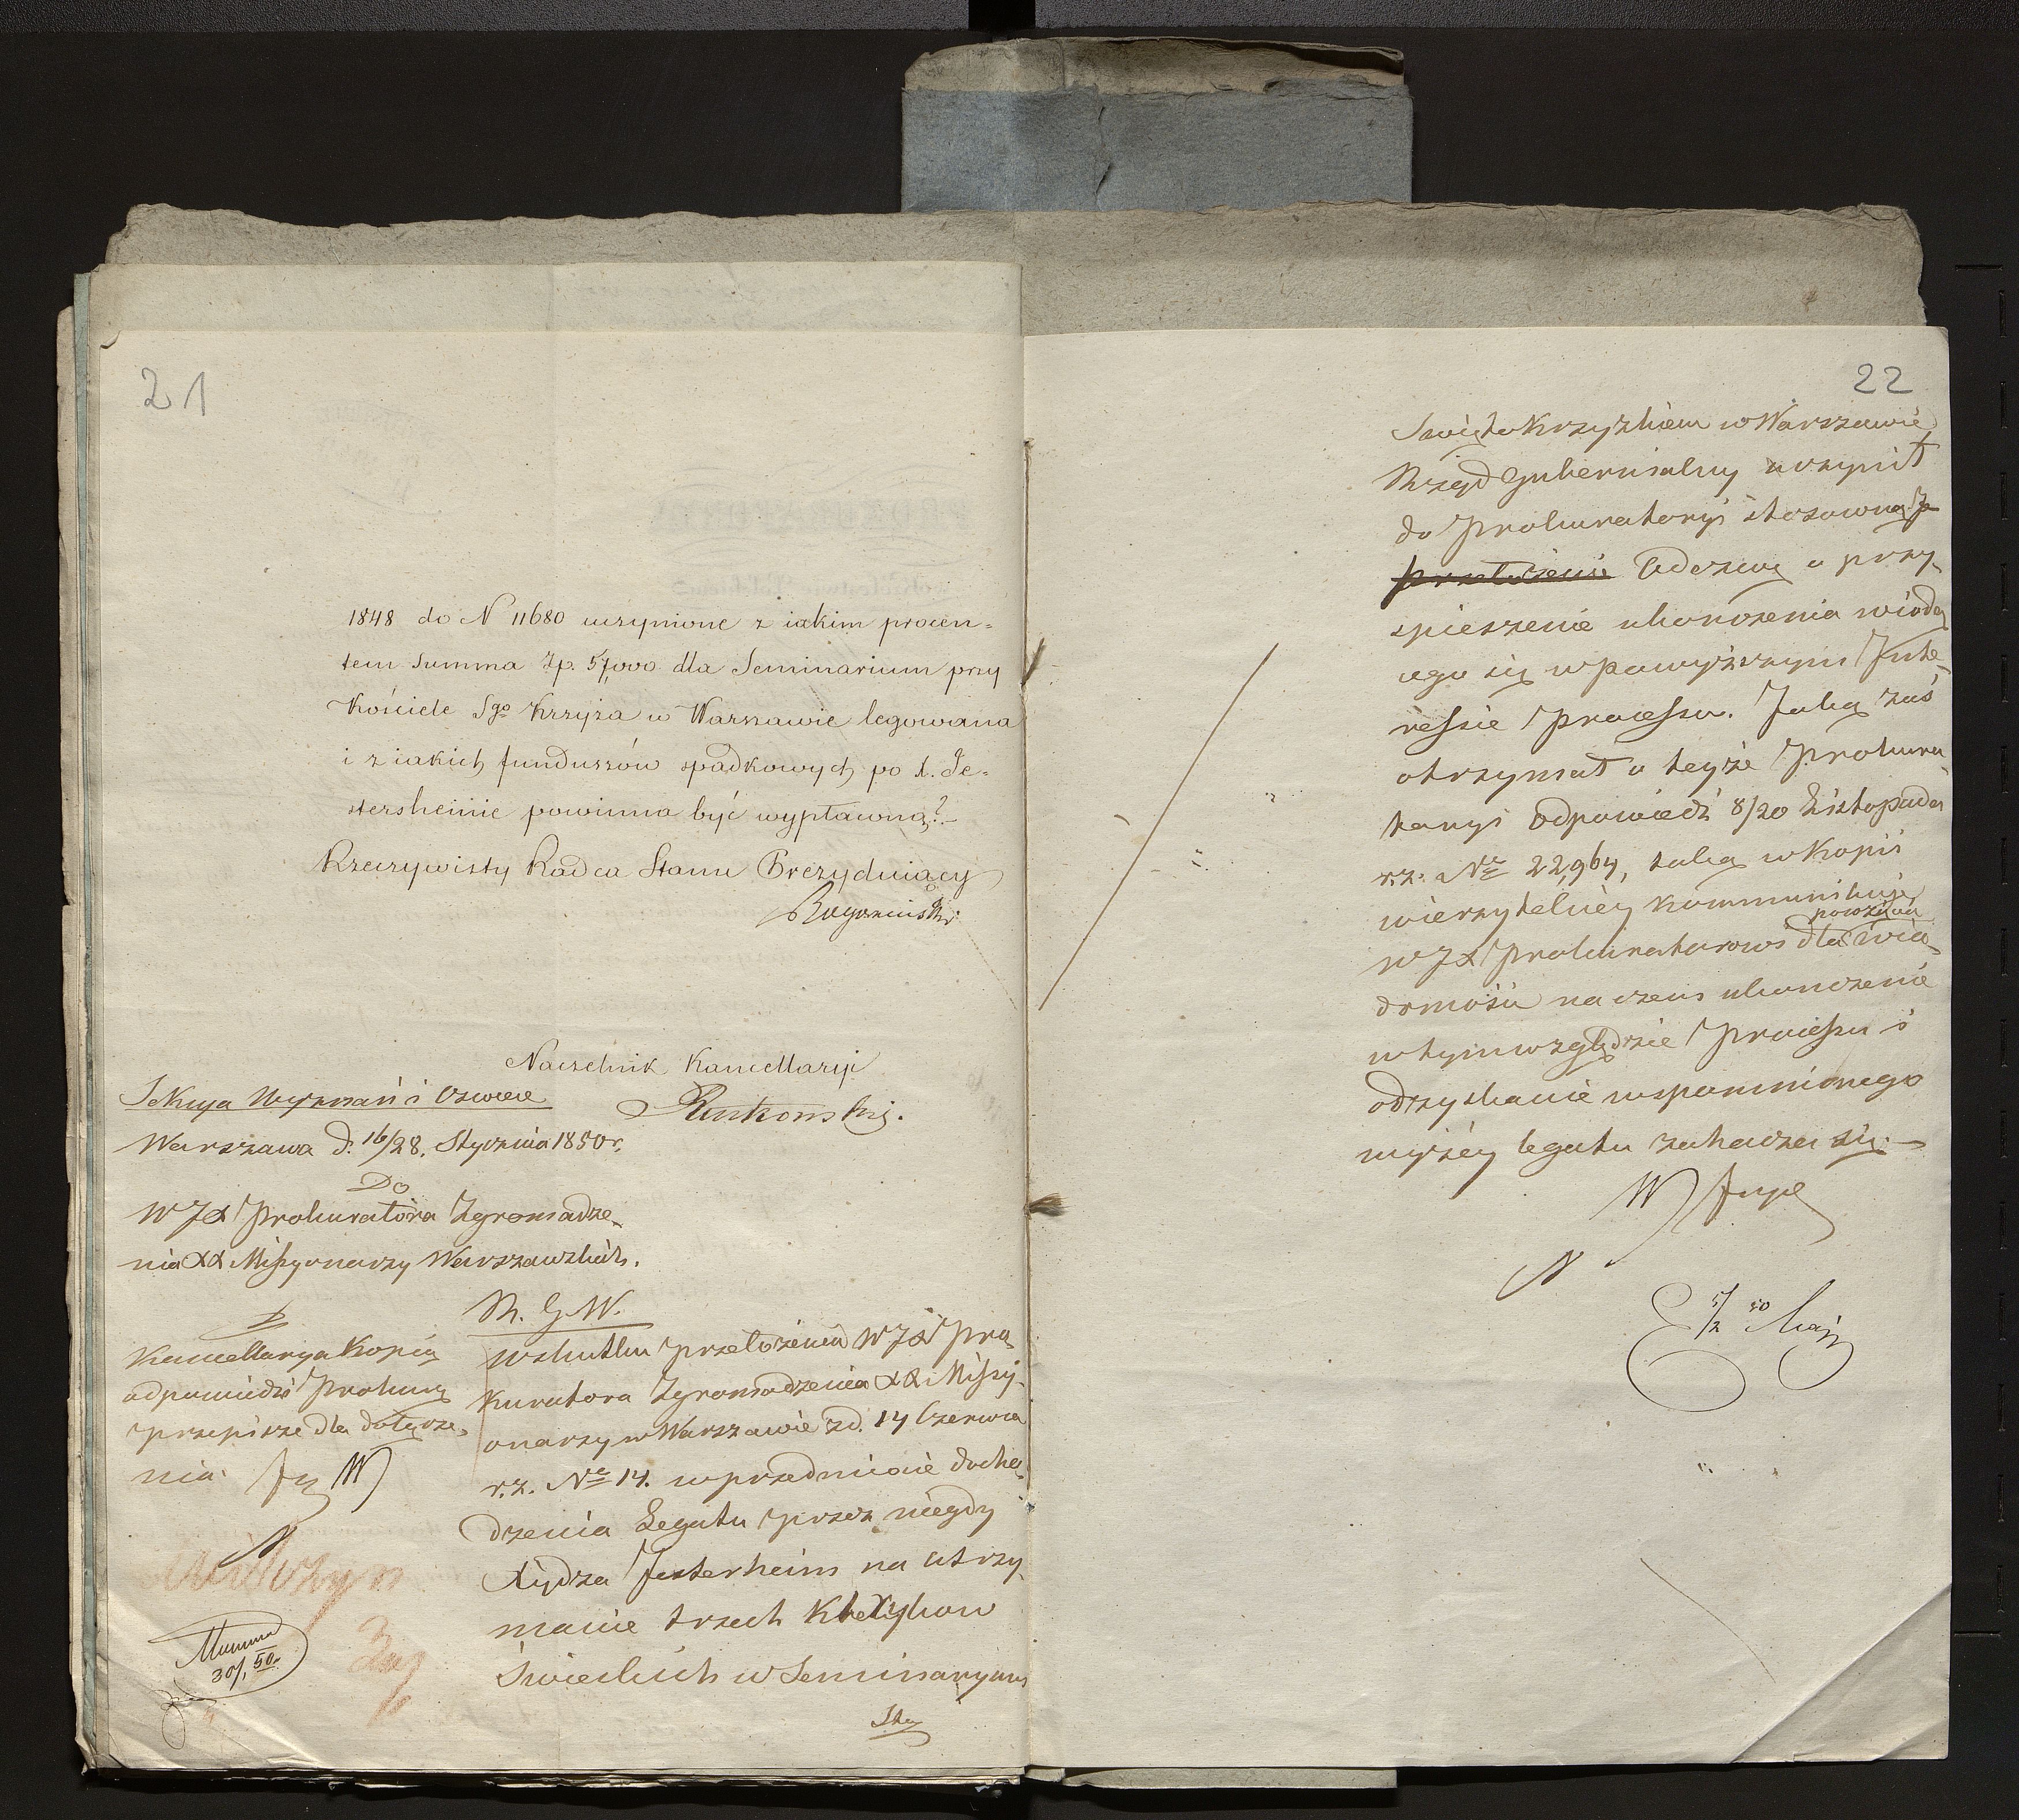 21
1848 do N 11680 uczynione z iakim procen=
tem Summa Zp. 57,000 dla Seminarium przy
Kościele Sgo Krzyża w Warszawie legowana
i z iakich funduszów spadkowych po X. Je=
stersheimie powinna być wypławną?
Rzeczywisty Radca Stanu Prezyduiący
Naczelnik Kancellaryi
Sekcya Wyznań i Oswiec
Warszawa d. 16/28. Stycznia 1850 r.
Do
WJX Prokuratora Zgromadze-
nia XX Missyonarzy Warszawskich.
Kancellarya Kopią
odpowiedzi Prokur
przepisze dla dołącze-
nia.
30/1 50.
R. G. W.
W skutku przełożenia WJX Pro-
kuratora Zgromadzenia XX Missy-
onarzy w Warszawie z d. 14 Czerwca
r. z. No 14. w przedmiocie docho-
dzenia Legatu przez niegdy
Xiędza Jesterheim na utrzy-
manie trzech Kleryków
Świeckich w Seminaryum
Sty
22
Święto Krzyzkiem w Warszawie
Rząd Gubernialny uczynił
do Prokuratoryi stosowną
przełożenie Odezwę o przy-
spieszenie ukończenia wiodą
cego się w powyższym Inte-
ressie Processu. Jaką zaś
otrzymał o teyże Prokura
toryi Odpowiedź 8/20 Listopada
r. z. No 22,964, taką w Kopii
wierzytelney kommunikuje
WJX Prokuratorowi dla powzięcia wia-
domości na czem ukończenie
w tym względzie Processu i
odzyskanie wspomnionego
wyżey legatu zahacza się.
5/2 50